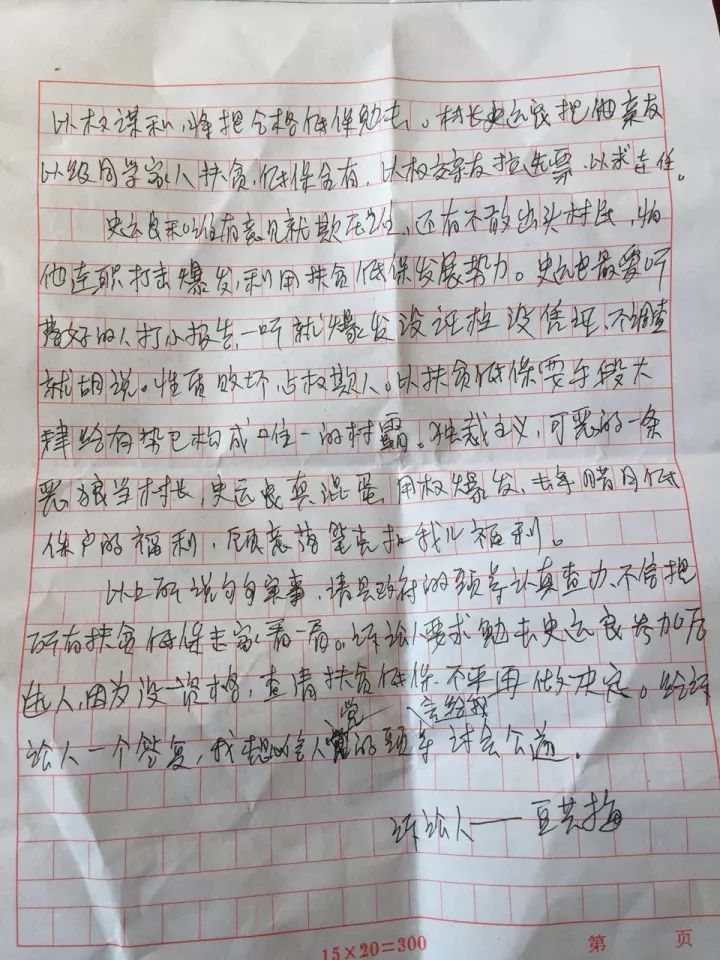 以权谋私,降把合格低保勉去。村长史运良把他亲友
以级同学家人扶贫,低保全有,以权交亲友拉选票,以求连任。
史运良和谁有意见就欺压谁,还有不敢出头村民,怕
他连职打击爆发,利用扶贫低保发展势力。史运良最爱听
好的人打小报告,一听就爆发没证柱没凭证,不调查
就胡说。性质败坏,占权欺人。以扶贫低保要手段大
肆给有势已构成唯一的村霸。独裁主义,可恶的一条
恶狼当村长,史运良真混蛋,用权爆发,去年腊月低
保户的福利,故意落笔克扣我儿福利。
以上所说句句实事,请县政府的领导认真查办,不信把
所有扶贫低保走家看一看。诉讼人要求勉去史运良参加后
选人,因为没一资格,查清扶贫低保,不平再做决定。给诉
讼人一个答复,我想信人党的领导讨会公道。
党 言给我
诉讼人——豆芸梅
15×20=300 第 页